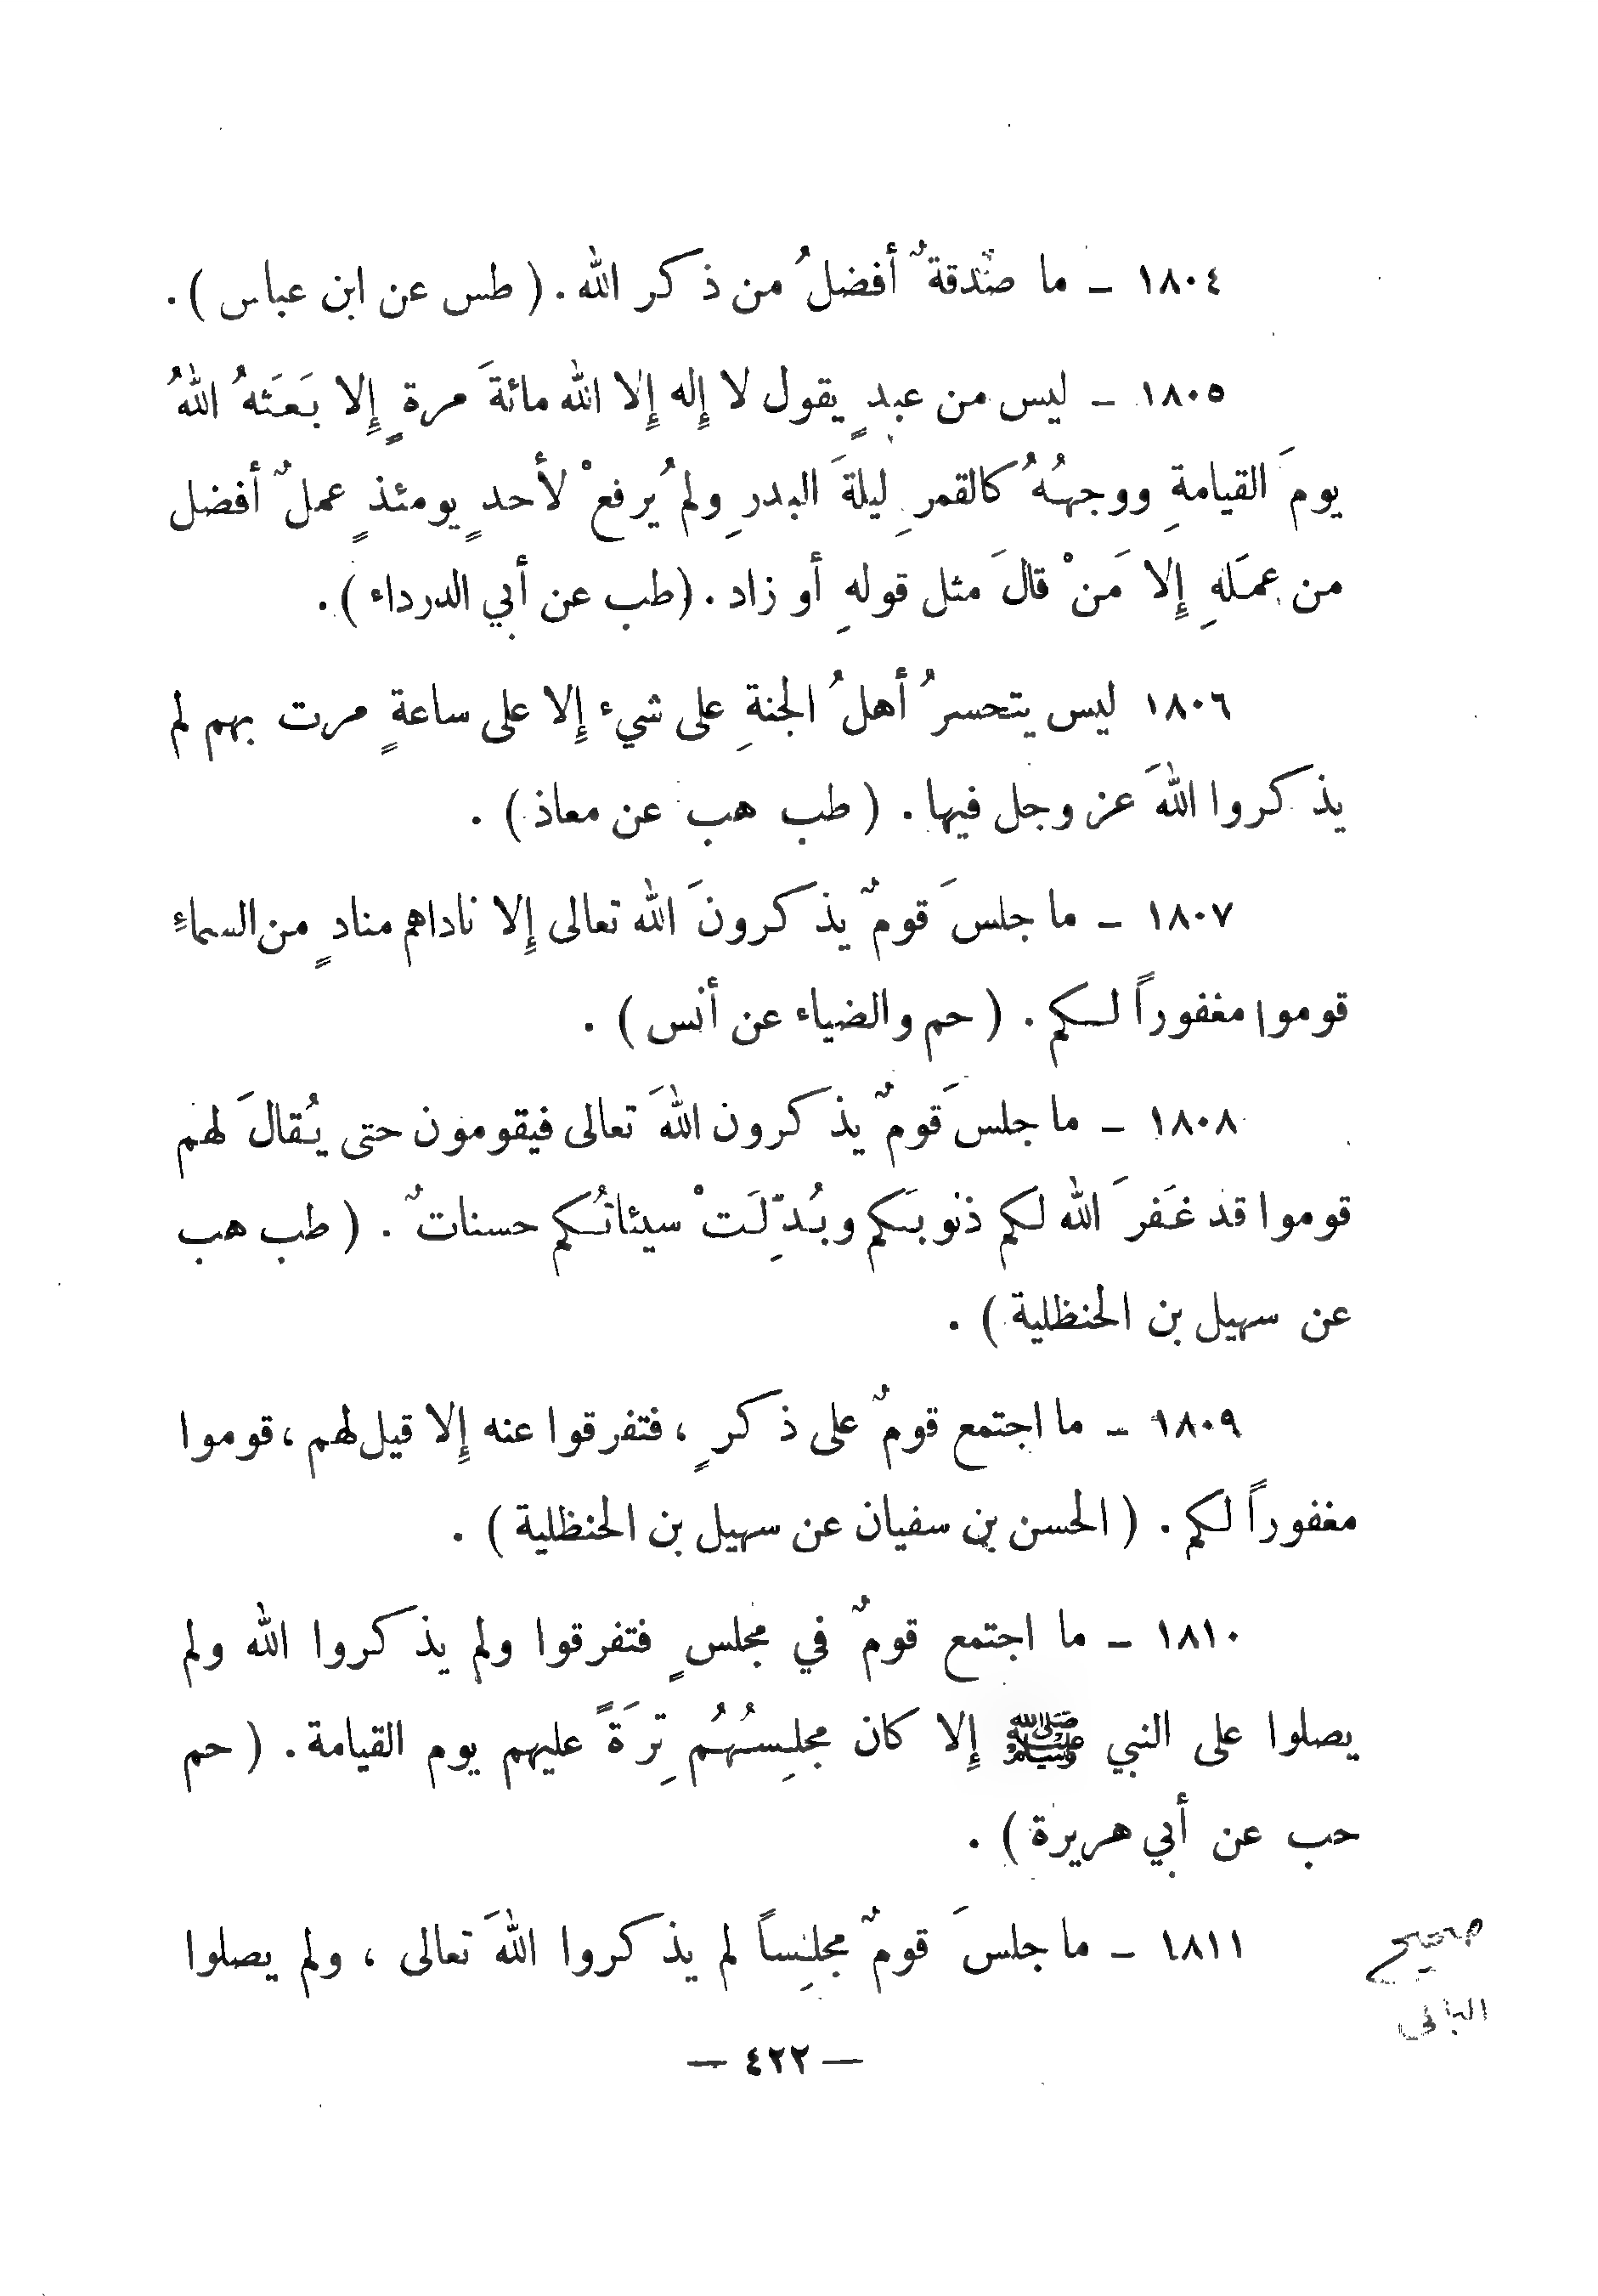 ١٨٠٤ ـ ما صدقةٌ أفضلُ من ذكر الله . ( طس عن ابن عباس ) .
١٨٠٥ ـ ليس من عبدٍ يقول لا إله إلا الله مائةَ مرةٍ إلا بَعَثهُ اللهُ
يومَ القيامةِ ووجههُ كالقمرِ ليلةَ البدرِ ولم يُرفعْ لأحدٍ يومئذٍ عملٌ أفضل
من عمَلهِ إلا مَنْ قالَ مثل قولهِ أو زاد . ( طب عن أبي الدرداء ) .
١٨٠٦ ليس يتحسرُ أهلُ الجنةِ على شيء إلا على ساعةٍ مرت بهم لم
يذكروا اللهَ عز وجل فيها . ( طب هب عن معاذ ) .
١٨٠٧ ـ ما جلسَ قومٌ يذكرونَ الله تعالى إلا ناداهم منادٍ من السماءِ
قوموا مغفوراً لكم . ( حم والضياء عن أنس ) .
١٨٠٨ ـ ما جلسَ قومٌ يذكرون اللهَ تعالى فيقومون حتى يُقالَ لهم
قوموا قد غَفرَ الله لكم ذنوبَكم وبُدِّلَتْ سيئاتُكم حسناتٌ . ( طب هب
عن سهيل بن الحنظلية ) .
١٨٠٩ ـ ما اجتمع قومٌ على ذكرٍ ، فتفرقوا عنه إلا قيل لهم ، قوموا
مغفوراً لكم . ( الحسن بن سفيان عن سهيل بن الحنظلية ) .
١٨١٠ ـ ما اجتمع قومٌ في مجلسٍ فتفرقوا ولم يذكروا الله ولم
يصلوا على النبي ﷺ إلا كان مجلِسُهُم تِرَةً عليهم يوم القيامة . ( حم
حب عن أبي هريرة ) .
١٨١١ ـ ما جلسَ قومٌ مجلِساً لم يذكروا اللهَ تعالى ، ولم يصلوا
صحيح
— ٤٢٢ —